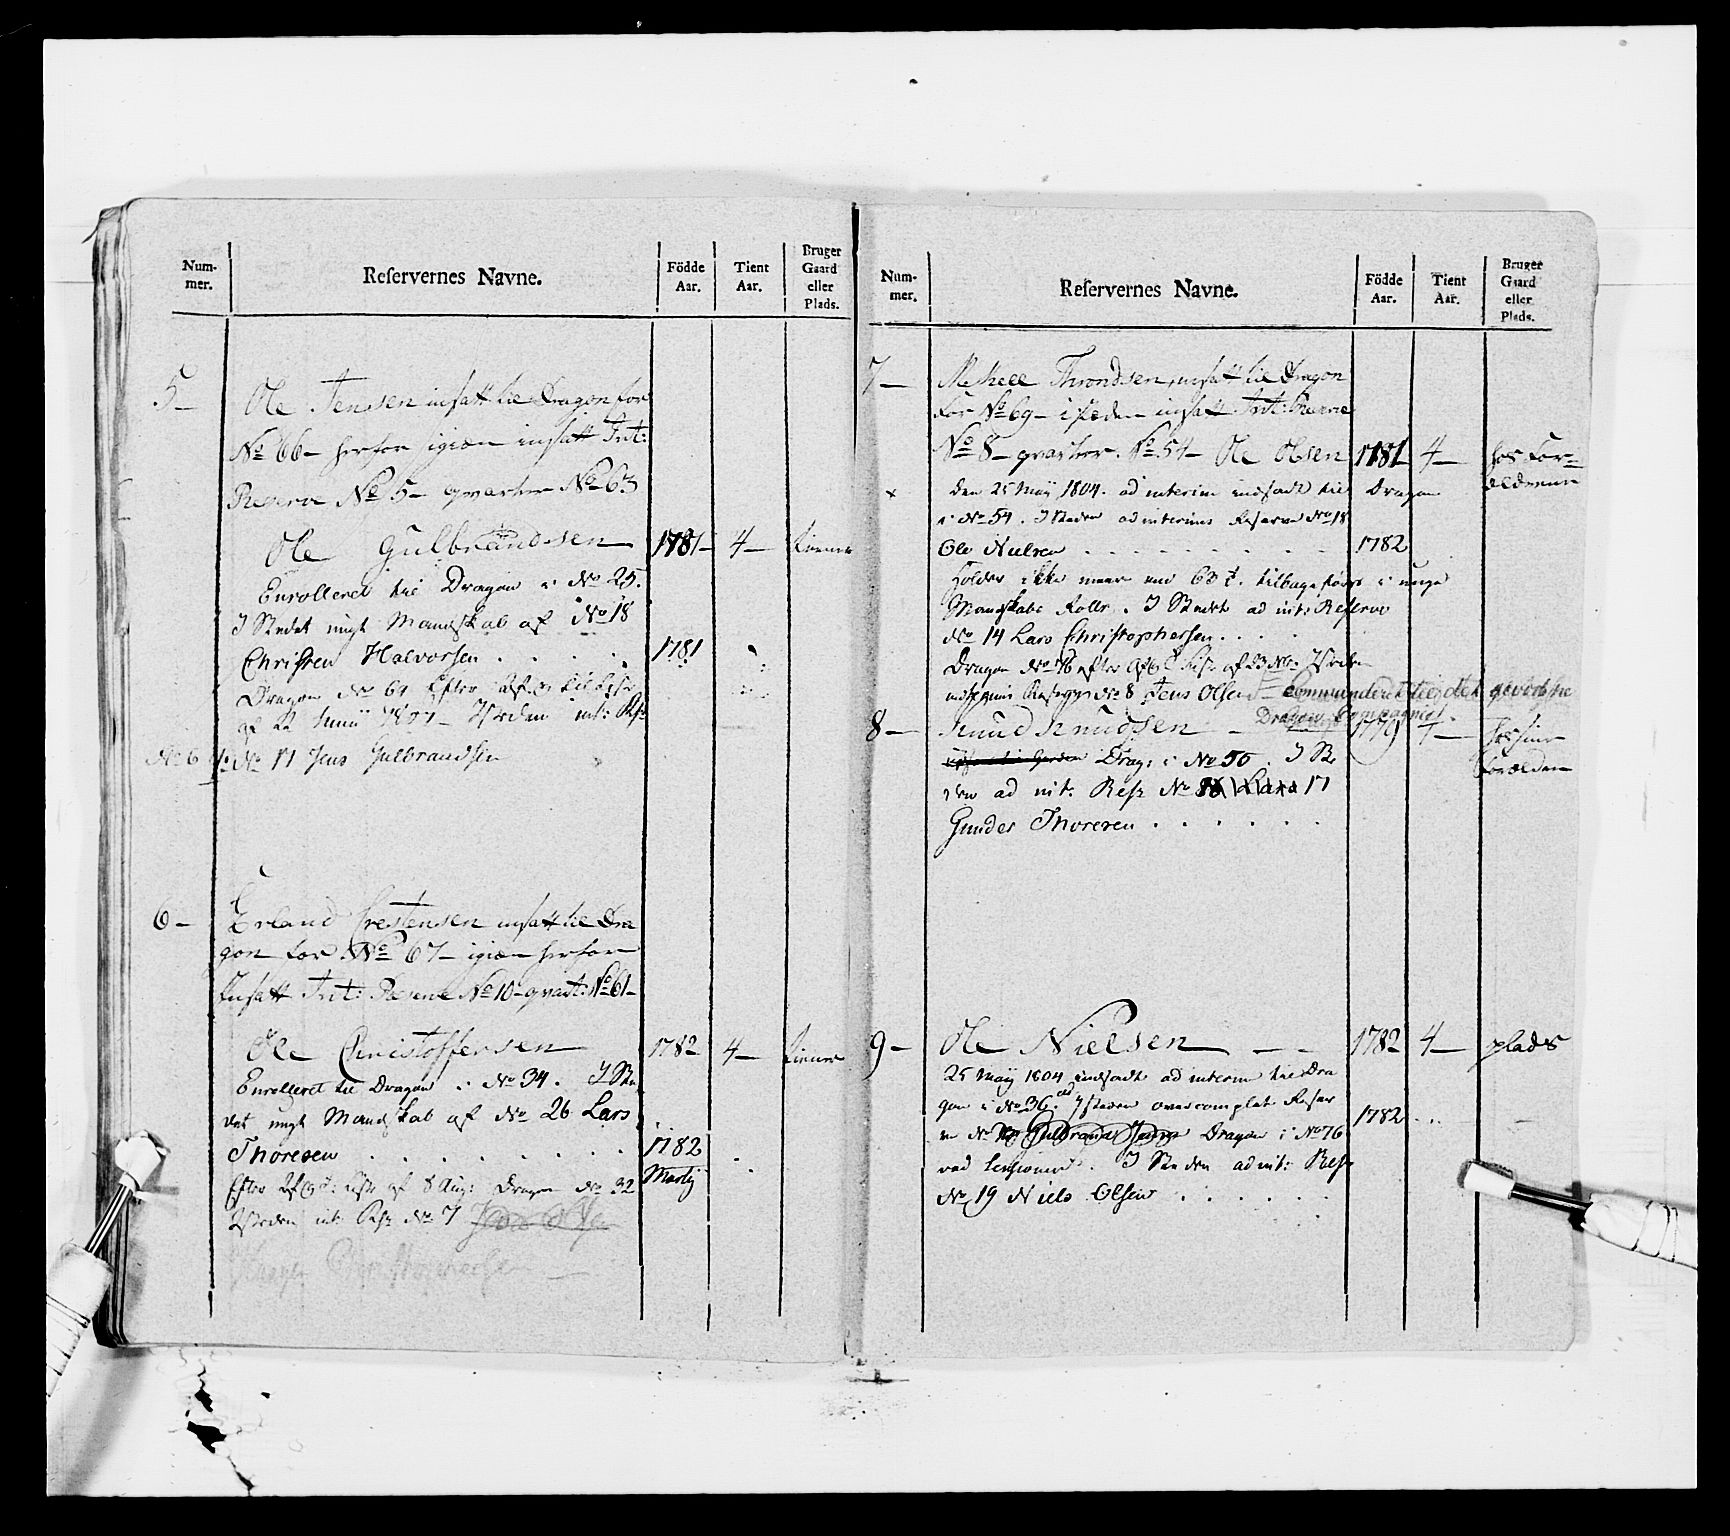 Num-
mer.
Reservernes Navne.
Födde
Aar.
Tient
Aar.
Bruger
Gaard
eller
Plads.
5 –
Ole Jensen insatt til Dragon for
No 66 – herfor igien insatt Int:
Reserve No 5 – qvarter No 63
Ole Gulbrandsen 1781 – 4 – tiener
Enrolleret til Dragon i No 25.
I Stedet ungt Mandskab af No 18
Christen Halvorsen . . . . 1781
Dragon No 61 Efter
af 22 Junii 1807 – int: Rsr
No 11 Jens Gulbrandsen
6 – Erland Crestensen insatt til Dra
gon for No 67 – igien herfor
Insatt Int: Reserve No 10 – qvart: No 61 –
Ole Christoffersen 1782 4 – tiener
Enrolleret til Dragon i No 34. I Ste
det ungt Mandskab af No 26 Lars
Thoresen . . . . . . . . 1782
Efter af 8 Aug: Dragon No 32 Martz
int: Rsr No 7
Christophersen
Num-
mer.
Reservernes Navne.
Födde
Aar.
Tient
Aar.
Bruger
Gaard
eller
Plads.
7 – Mekell Throndsen, insatt til Dragon
for No 69 – i steden insatt Int: Reserve
No 8 – qvarter No 54 – Ole Olsen 1781 4 – hos For-
ældrene
x den 25 Maÿ 1804. ad interim indsadt til Dragon
i No 54. I Steden ad interims Reserve No 18
Ole Nielsen . . . . . . . . 1782
Holder ikke meer end 63 t. tilbageført i unge
Mandskabs Rolle. I Stedet ad int: Reserve
No 14 Lars Christophersen . . . .
Dragon No 76 efter af 23
No 8 Jens Olsen – Commanderet til det
Dragon Compagnie.
8 – Knud Knudsen – 1779 7 – hos sine
Forældre
Drag: i No 50. I Ste
den ad int: Resr No 17
Gunder Thoresen . . . . . .
9 – Ole Nielsen – – 1782 4 – plads
25 Maÿ 1804 indsadt ad interim til Dra
gon i No 36. I steden overcomplet Reser
ve No Dragon i No 76 1782
ved . I Steden ad int: Resr
No 19 Niels Olsen . . . . . .